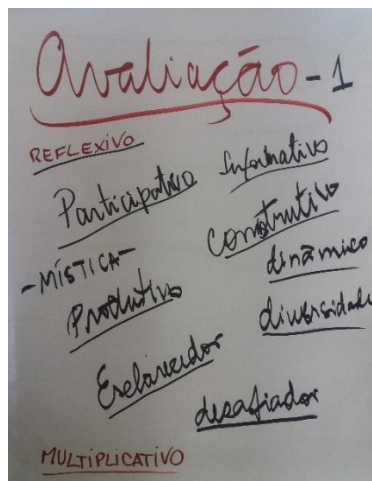 Avaliação-1
REFLEXIVO
Informativo
Participativo
Construtivo
-MÍSTICA-
dinâmico
Produtivo
diversidade
Esclarecedor
desafiador
MULTIPLICATIVO